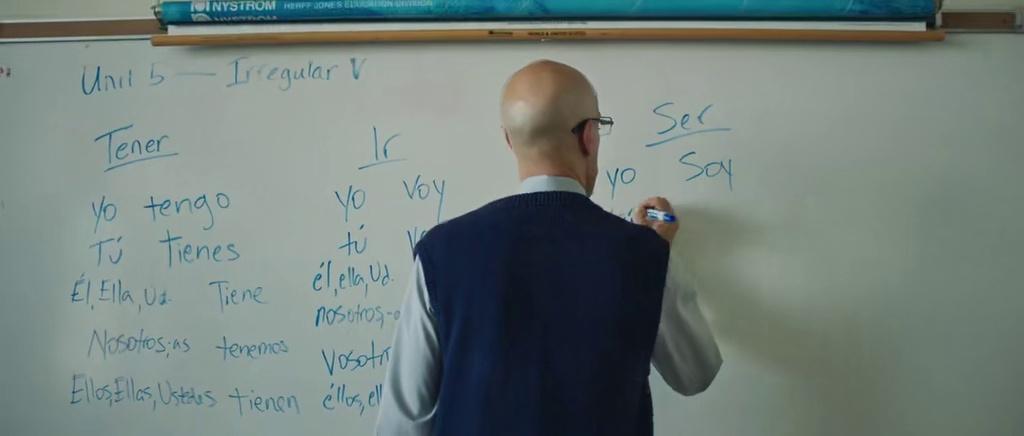 NYSTROM HERFF JONES EDUCATION DIVISION
NYSTROM
WORLD & UNITED STATES
Unit 5 — Irregular V
Tener
yo tengo
Tú tienes
Él, Ella, Ud. Tiene
Nosotros,-as tenemos
Ellos, Ellas, Ustedes tienen
Ir
yo voy
tú
él, ella, Ud.
nosotros,-a
Vosotr
éllos, ell
Ser
yo soy